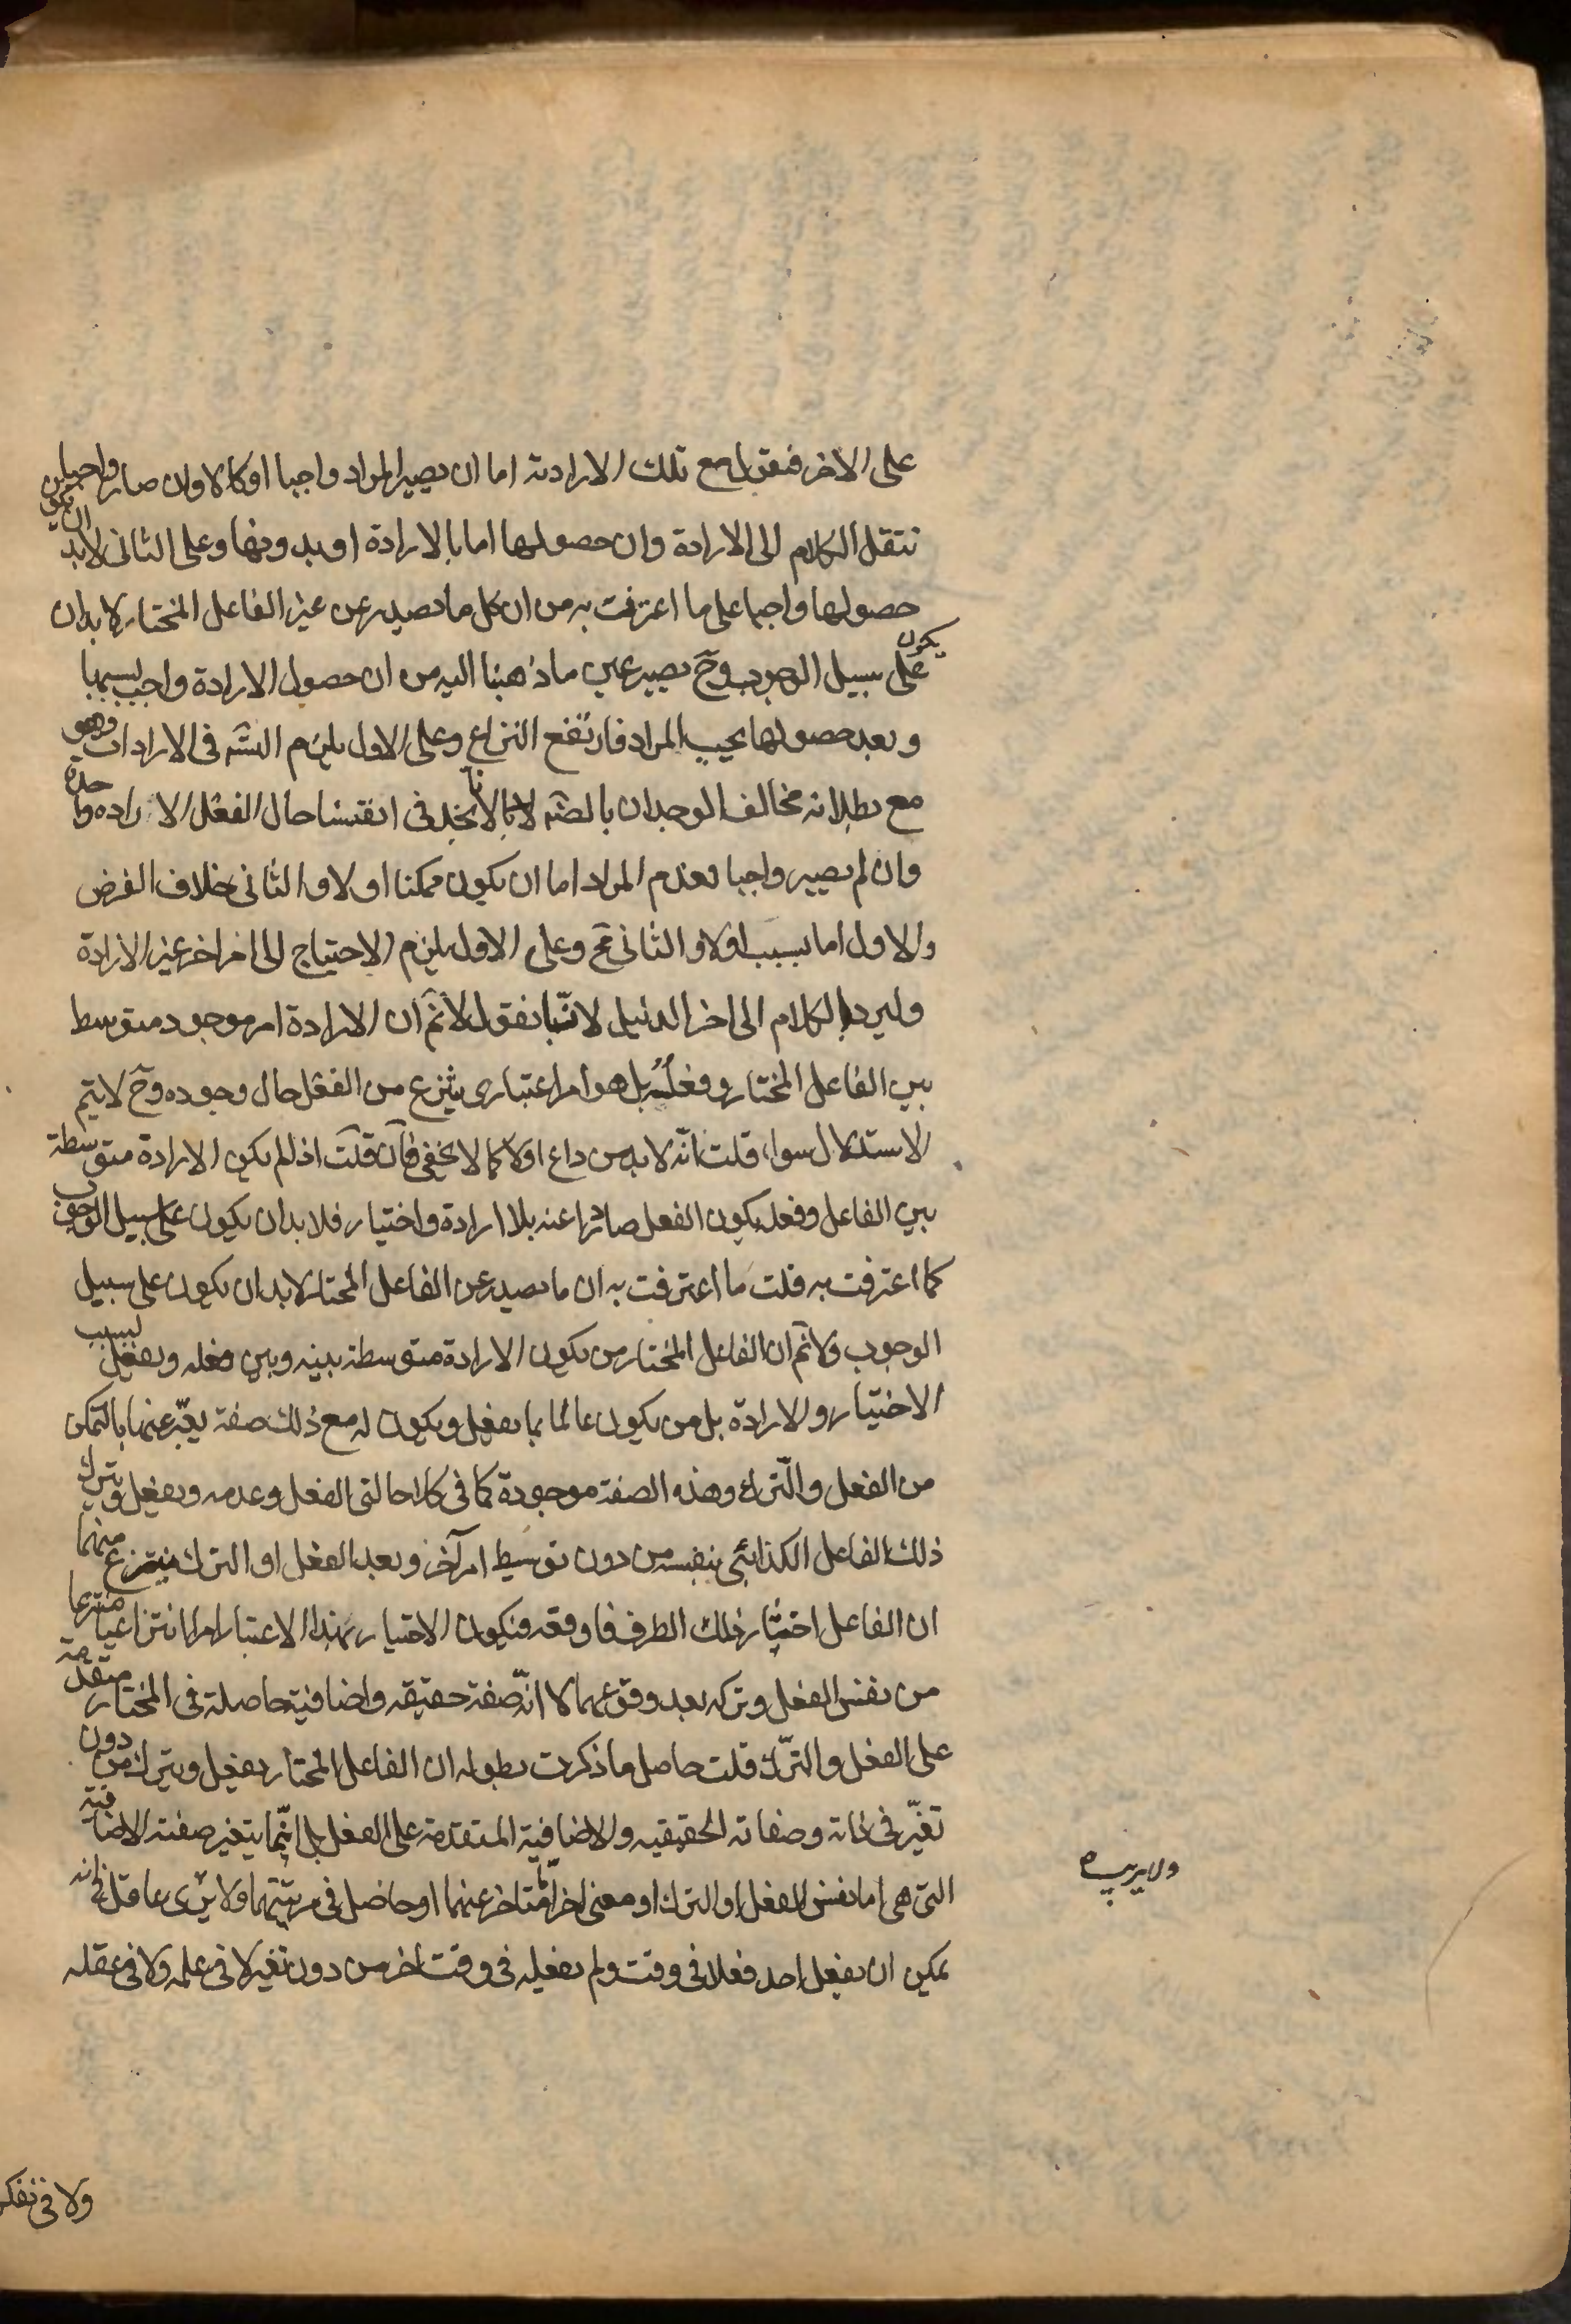 على الاخر فنقول مع تلك الارادة اما ان يصير المراد واجبا او لا وان صار واجبا
ننتقل الكلام الى الارادة وان حصولها اما بالارادة او بدونها وعلى الثانى لابد ان يكون
حصولها واجبا على ما اعترفت به من ان كل ما يصدر عن غير الفاعل المختار لابد ان
يكون على سبيل الوجوب وح يصير عين ما ذهبنا اليه من ان حصول الارادة واجب بسببها
وبعد حصولها يجب المراد فارتفع النزاع وعلى الاول يلزم التسه فى الارادات وهو
مع بطلانه مخالف الوجدان بالضه لانا لا نجد فى انفسنا حال الفعل الا ارادة واحدة
وان لم يصير واجبا فعدم المراد اما ان يكون ممكنا او لا والثانى خلاف الفرض
والاول اما بسبب اولا والثانى مح وعلى الاول يلزم الاحتياج الى امر اخر غير الارادة
وليرد الكلام الى اخر الدليل لانا نقول لانم ان الارادة امر موجود متوسط
بين الفاعل المختار وفعله بل هو امر اعتبارى ينتزع من الفعل حال وجوده وح لا يتم
الاستدلال سواء قلت انه لابد من داع اولا كما لا يخفى فان قلت اذا لم يكن الارادة متوسطة
بين الفاعل وفعله يكون الفعل صادرا عنه بلا ارادة واختيار فلا بد ان يكون على سبيل الوجوب
كما اعترفت به قلت ما اعترفت به ان ما يصدر عن الفاعل المختار لابد ان يكون على سبيل
الوجوب ولانم ان الفاعل المختار من يكون الارادة متوسطة بينه وبين فعله ويفعل بسبب
الاختيار والارادة بل من يكون عالما بما يفعل ويكون له مع ذلك صفة يعبّر عنها بالتمكن
من الفعل والترك وهذه الصفة موجودة كما فى كلا حالتى الفعل وعدمه ويفعل ويترك
ذلك الفاعل الكذائى بنفسه من دون توسيط امر آخر وبعد الفعل او الترك ينتزع منهما
ان الفاعل اختار ذلك الطرف فاوقعه فيكون الاختيار بهذا الاعتبار امرا انتزاعيا منتزعا
من نفس الفعل وتركه بعد وقوعهما لا انه صفة حقيقه واضافية حاصلة فى المختار متقدمة
على الفعل والترك قلت حاصل ما ذكرت بطوله ان الفاعل المختار يفعل ويترك من دون
تغيّر فى ذاته وصفاته الحقيقيه والاضافية المتقدمة على الفعل بل انما يتغير صفته الاضافية
التى هى اما نفس الفعل او الترك او معنى اخر متاخر عنهما او حاصل فى مرتبتهما ولا يرى عاقل انه
يمكن ان يفعل احد فعلا فى وقت ولم يفعله فى وقت اخر من دون تغير لا فى علمه ولا فى عقله
ولا فى تفكر